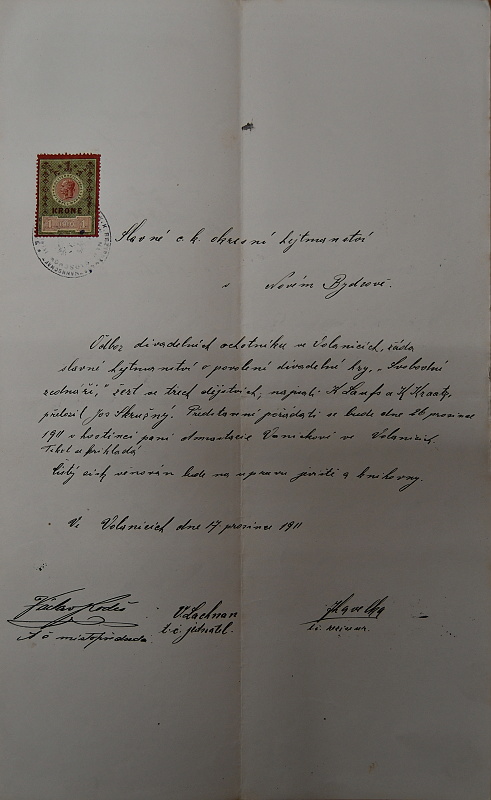 1
KRONE
Slavné c. k. okresní hejtmanství
v Novém Bydžově.
Odbor divadelních ochotníku ve Volanicích, žádá
slavné hejtmanství o povolení divadelní hry, „Svobodní
zednáři," žert ve třech dějstvích, napsali K Laufs a K Kraatz,
přeložil Jos Skružný. Představení pořádati se bude dne 26 prosince
1911 v hostinci paní Vaníčkové ve Volanicích.
Text se přikládá
Čistý věnován bude na úpravu jeviště a knihovny.
Ve Volanicích dne 17 prosince 1911
Václav
t. č. místopředseda
V. Lachman
t. č. jednatel.
JHavelka
t. č. režisér.